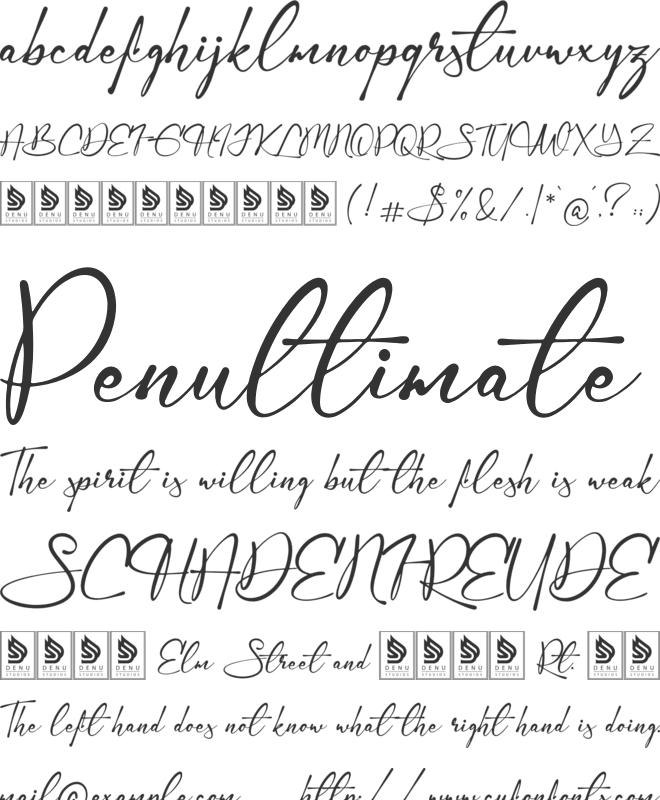 abcdefghijklmnopqrstuvwxyz
ABCDEFGHIJKLMNOPQRSTUVWXYZ
DENU STUDIOS DENU STUDIOS DENU STUDIOS DENU STUDIOS DENU STUDIOS DENU STUDIOS DENU STUDIOS DENU STUDIOS DENU STUDIOS DENU STUDIOS (!#$%&/.|*`@´,?:;)
Penultimate
The spirit is willing but the flesh is weak
SCHADENFREUDE
DENU STUDIOS DENU STUDIOS DENU STUDIOS DENU STUDIOS Elm Street and DENU STUDIOS DENU STUDIOS DENU STUDIOS DENU STUDIOS Rt. DENU STUDIOS DENU STUDIOS
The left hand does not know what the right hand is doing.
mail@example.com http://www.cufonfonts.com